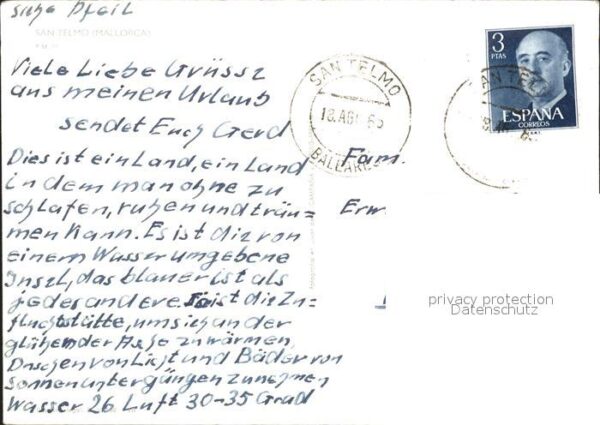 siehe Pfeil
SAN TELMO (MALLORCA)
Viele Liebe Grüsse
aus meinen Urlaub
sendet Euch Gerd
Dies ist ein Land, ein Land
in dem man ohne zu
schlafen, ruhen und träu=
men kann. Es ist die von
einem Wasser umgebene
Insel, das blauer ist als
jedes andere. Sie ist die Zu=
fluchtstätte, um sich an der
glühender Asche zu wärmen,
Duschen von Licht und Bäder von
Sonnenuntergängen zu nehmen
Wasser 26 Luft 30-35 Grad
SAN TELMO
18. AGO 65
BALEARES
3
PTAS
ESPAÑA
CORREOS
SAN TELMO
Fam.
Erw
privacy protection
Datenschutz